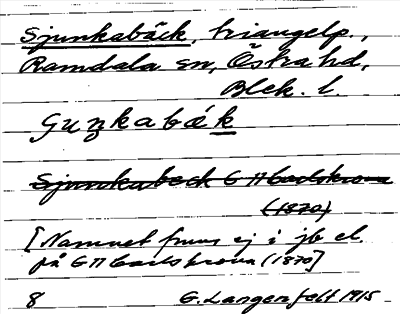 Sjunkabäck, triangelp.,
Ramdala sn, Östra hd,
Blek. l.
Guŋkabák
Sjunkaback G H Carlskrona
(1870)
[Namnet finns ej i jb el.
på G H Carlskrona (1870)]
8 G. Langenfelt 1915